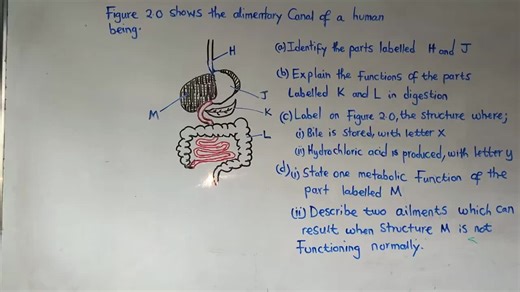 Figure 2.0 shows the alimentary Canal of a human
being.
H
J
K
L
M
(a) Identify the parts labelled H and J
(b) Explain the functions of the parts
Labelled K and L in digestion
(c) Label on Figure 2.0, the structure where;
(i) Bile is stored, with letter X
(ii) Hydrochloric acid is produced, with letter y
(d) (i) State one metabolic function of the
part labelled M
(ii) Describe two ailments which can
result when structure M is not
functioning normally.